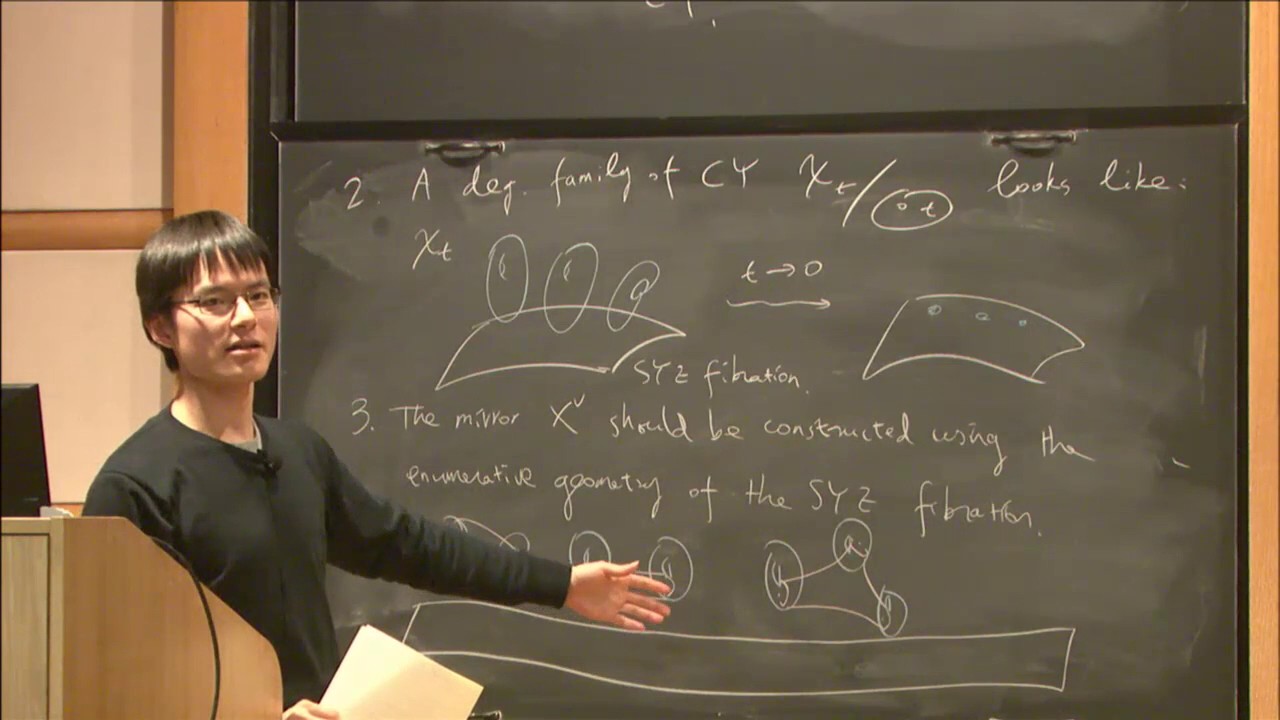 2. A deg. family of CY 𝒳t/ȯt looks like:
𝒳t
t→0
SYZ fibration.
3. The mirror X^∨ should be constructed using the
enumerative geometry of the SYZ fibration.